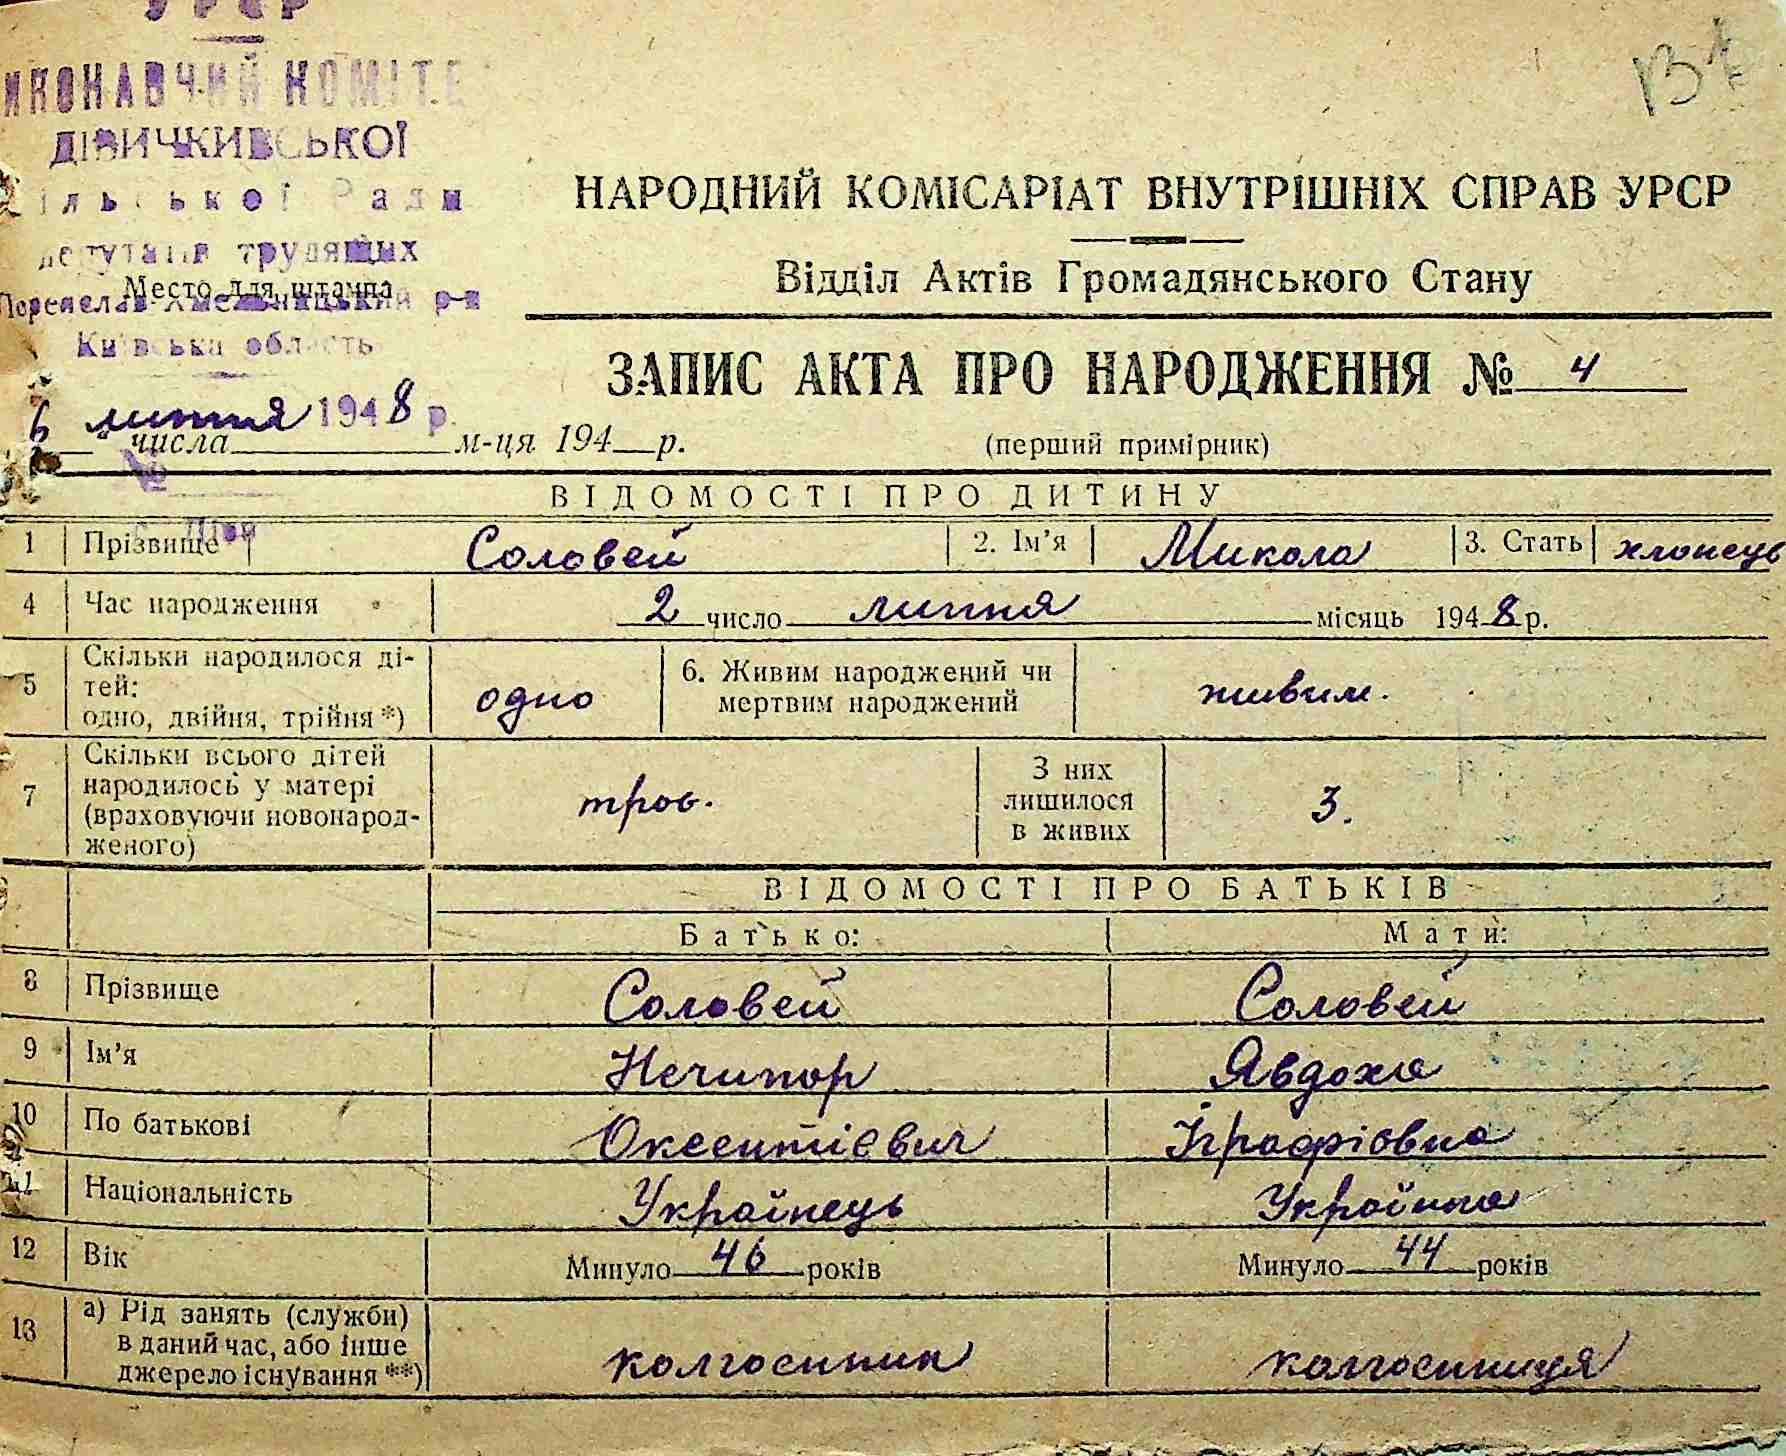 УРСР
ИКОНАВЧИЙ КОМІТЕ
ДІВИЧКИВСЬКОЇ
ільської Ради
депутатів трудящих
Место для штампа
р-н
Київська область
6 липня 1948 р.
числа м-ця 194 р.
№
НАРОДНИЙ КОМІСАРІАТ ВНУТРІШНІХ СПРАВ УРСР
Відділ Актів Громадянського Стану
ЗАПИС АКТА ПРО НАРОДЖЕННЯ № 4
(перший примірник)
ВІДОМОСТІ ПРО ДИТИНУ
1 Прізвище Соловей 2. Ім'я Микола 3. Стать хлопець
4 Час народження 2 число липня місяць 1948 р.
5 Скільки народилося ді-
тей:
одно, двійня, трійня *) одно 6. Живим народжений чи
мертвим народжений живим.
7 Скільки всього дітей
народилось у матері
(враховуючи новонарод-
женого) троє. З них
лишилося
в живих 3.
ВІДОМОСТІ ПРО БАТЬКІВ
Батько: Мати:
8 Прізвище Соловей Соловей
9 Ім'я Нечипор Явдоха
10 По батькові Оксентієвич
11 Національність Українець Українка
12 Вік Минуло 46 років Минуло 44 років
13 а) Рід занять (служби)
в даний час, або інше
джерело існування **) колгоспник колгоспниця